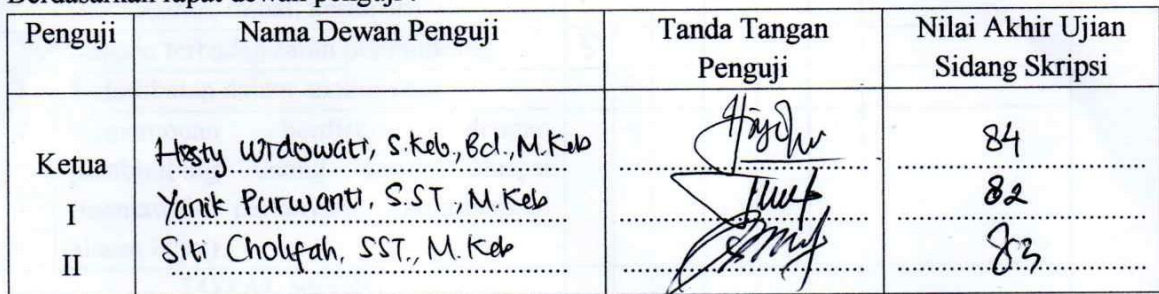 Berdasarkan rapat dewan penguji :
Penguji Nama Dewan Penguji Tanda Tangan Penguji Nilai Akhir Ujian Sidang Skripsi
Ketua Hesty Widowati, S.Keb., Bd., M.Keb 84
I Yanik Purwanti, S.ST., M.Keb 82
II Siti Cholifah, SST., M.Keb 83